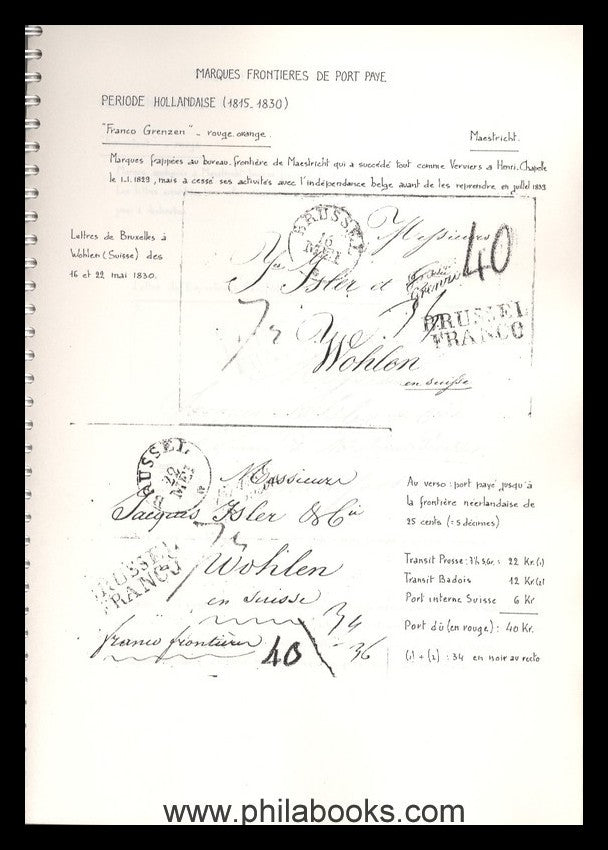 MARQUES FRONTIERES DE PORT PAYE
PERIODE HOLLANDAISE (1815.1830)
"Franco Grenzen" - rouge.orange.
Maestricht.
Marques frappées au bureau.frontière de Maestricht qui a succédé tout comme Verviers à Henri.Chapelle
le 1.1.1829, mais a cessé ses activités avec l'indépendance belge avant de les reprendre en juillet 1833
Lettres de Bruxelles à
Wohlen (Suisse) des
16 et 22 mai 1830.
BRUSSEL
16
MEI
Messieurs
40
Isler et
Grenzen
BRUSSEL
FRANCO
Wohlen
en suisse
BRUSSEL
22
MEI
Messieurs
Jacques Isler & Cie
BRUSSEL
FRANCO
Wohlen
en suisse
34
franco frontière
40
36
Au verso : port payé jusqu'à
la frontière néerlandaise de
25 cents (= 5 décimes)
Transit Prusse : 7½ SGr. = 22 Kr. (1)
Transit Badois 12 Kr (2)
Port interne Suisse 6 Kr
Port dû (en rouge) : 40 Kr.
(1) + (2) : 34 en noir au recto
www.philabooks.com